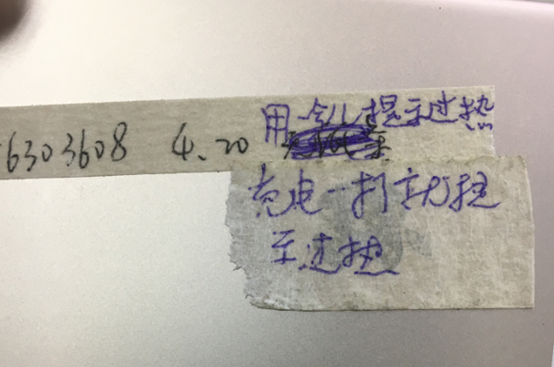 6303608 4.20 用一会儿提示过热
充电一打就提
示过热